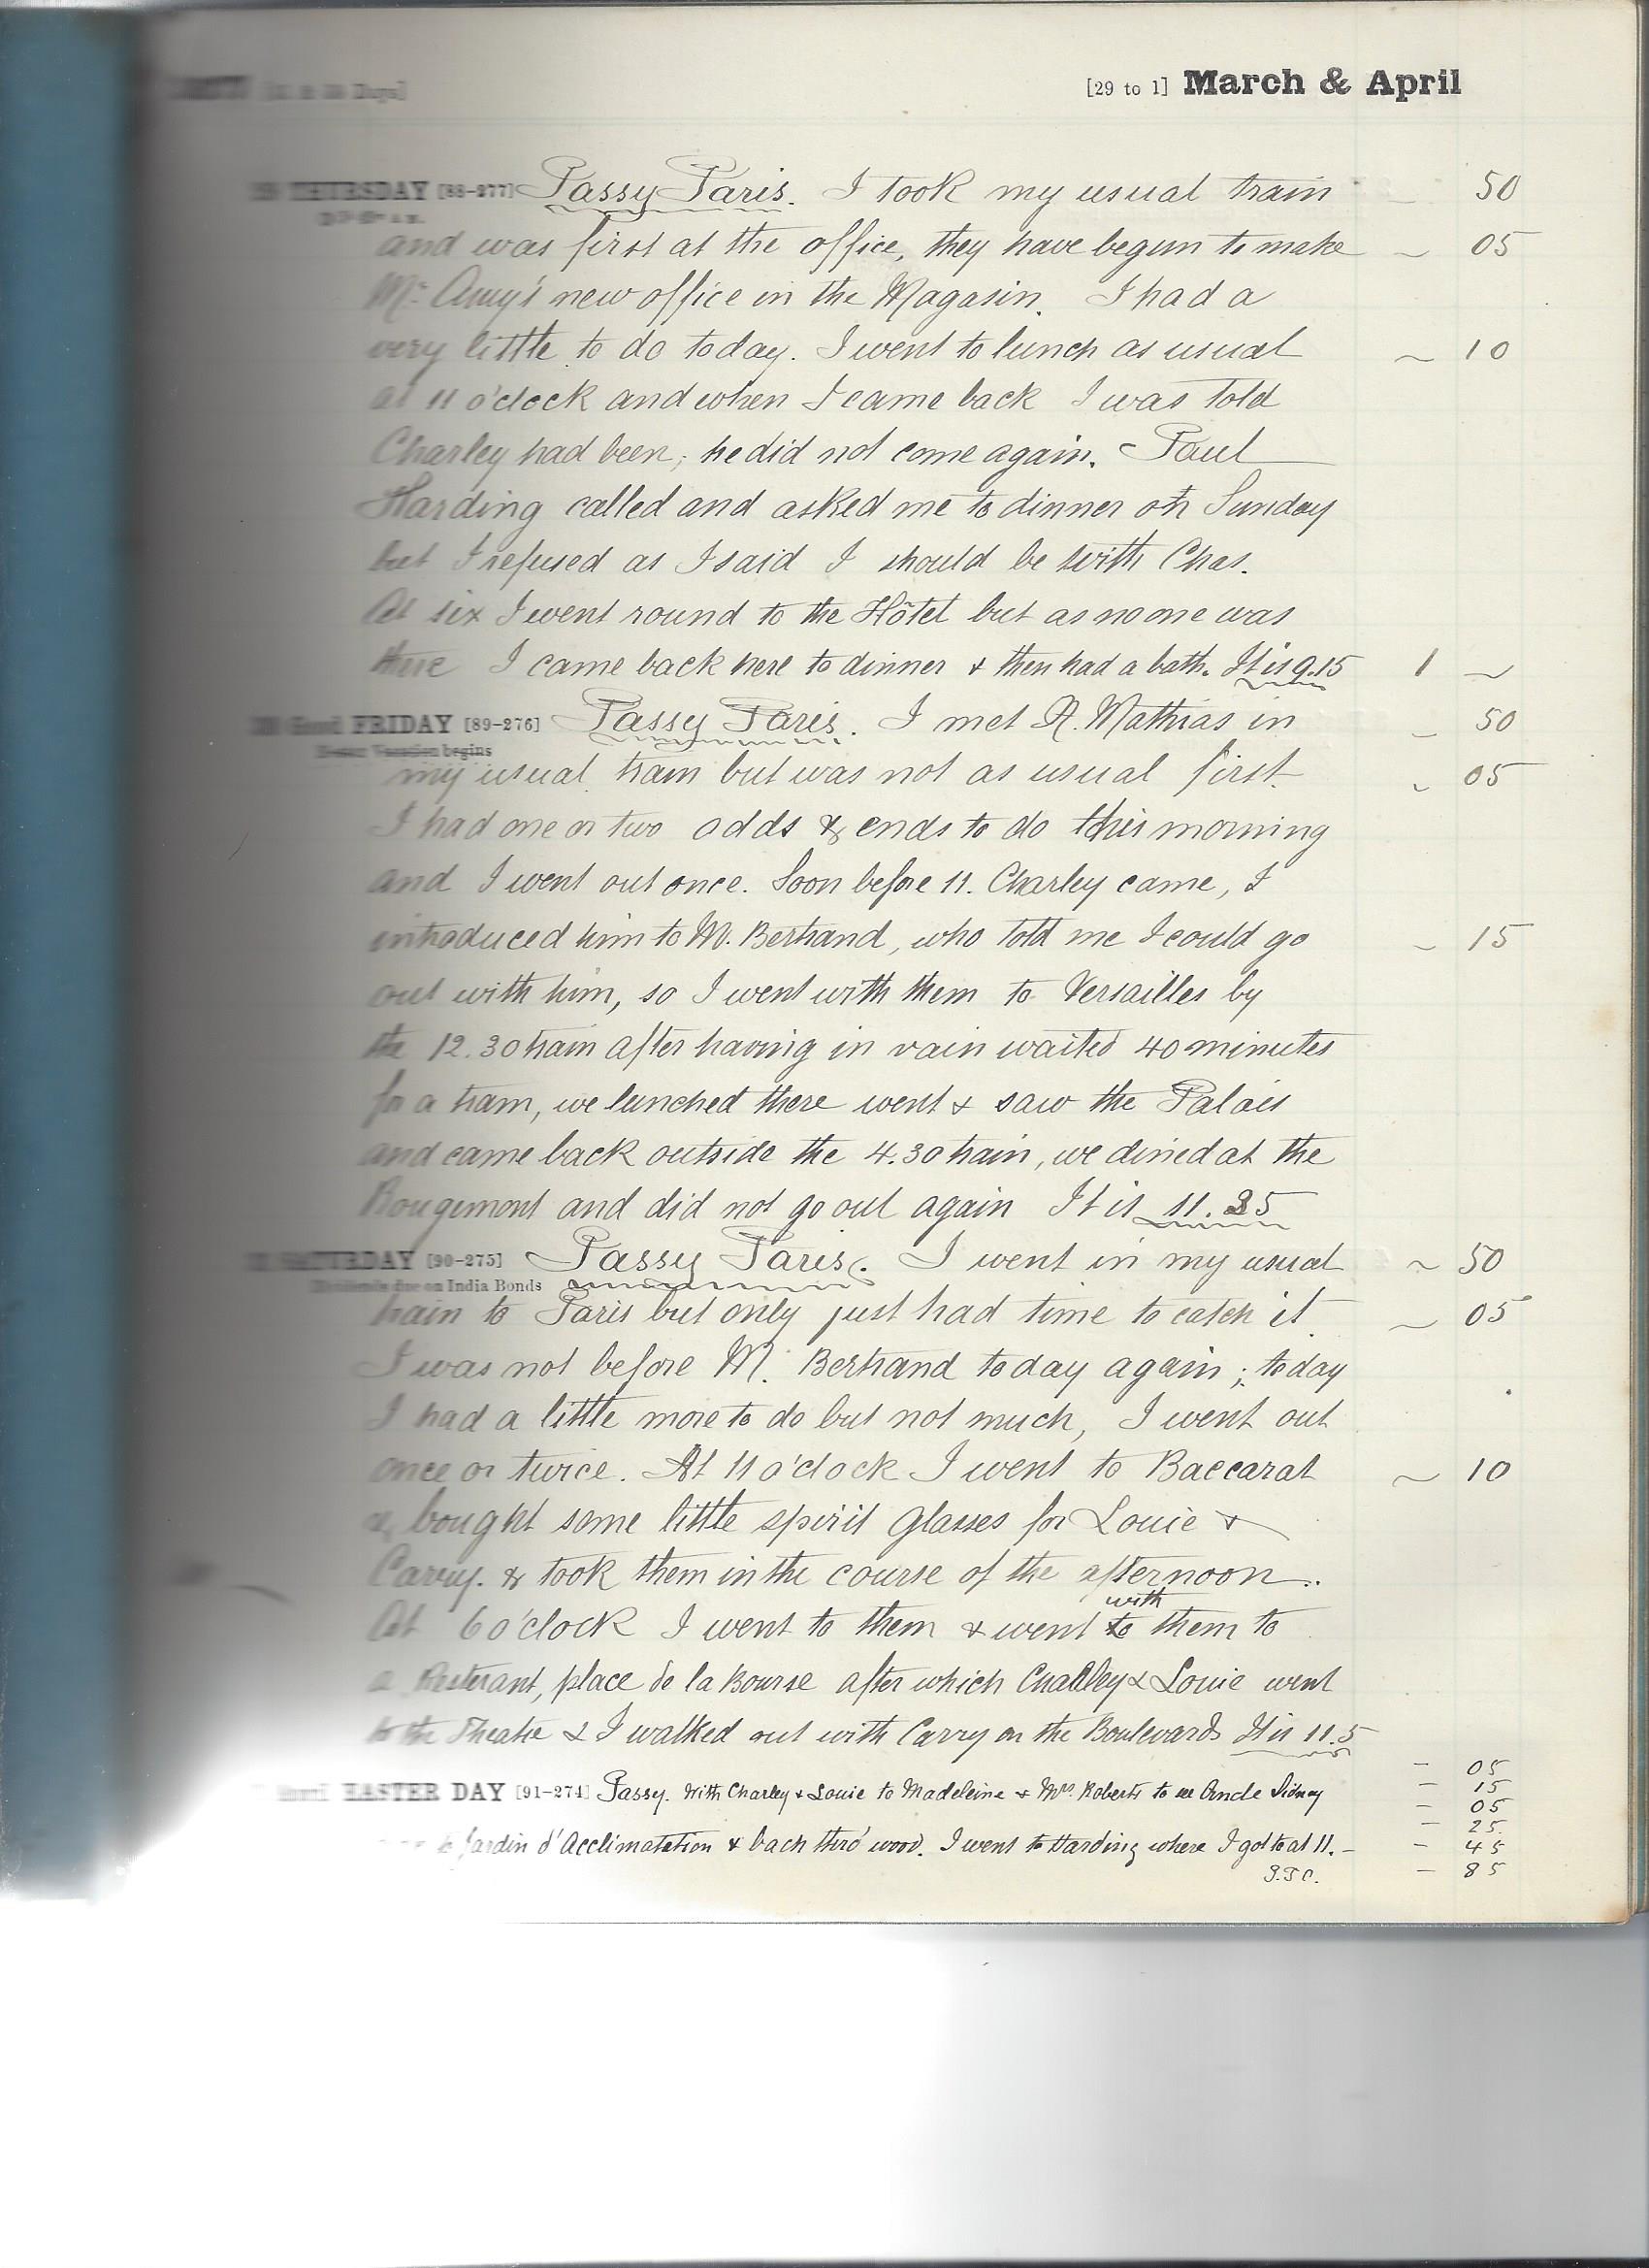 [29 to 1] March & April
THURSDAY [88-277] Passy Paris. I took my usual train – 50
and was first at the office, they have begun to make ~ 05
Mr Amy's new office in the Magasin. I had a
very little to do today. I went to lunch as usual ~ 10
at 11 o'clock and when I came back I was told
Charley had been; he did not come again. Paul
Harding called and asked me to dinner on Sunday
but I refused as I said I should be with Chas.
At six I went round to the Hôtel but as no one was
there I came back here to dinner & then had a bath. It is 9.15 1 ~
Good FRIDAY [89-276] Passy Paris. I met A. Mathias in – 50
Easter Vacation begins
my usual train but was not as usual first. ~ 05
I had one or two odds & ends to do this morning
and I went out once. Soon before 11. Charley came, I
introduced him to M. Bertrand, who told me I could go – 15
out with him, so I went with them to Versailles by
the 12.30 train after having in vain waited 40 minutes
for a tram, we lunched there went & saw the Palais
and came back outside the 4.30 train, we dined at the
Rougemont and did not go out again It is 11.35
SATURDAY [90-275] Passy Paris. I went in my usual ~ 50
Dividends due on India Bonds
train to Paris but only just had time to catch it. ~ 05
I was not before M. Bertrand today again; today
I had a little more to do but not much, I went out
once or twice. At 11 o'clock I went to Baccarat ~ 10
& bought some little spirit glasses for Louie &
Carry. & took them in the course of the afternoon..
with
At 6 o'clock I went to them & went to them to
a Resterant, place de la Bourse after which Charley & Louie went
to the Theatre & I walked out with Carry on the Boulevards It is 11.5
– 05
EASTER DAY [91-274] Passy. With Charley & Louie to Madeleine & Mrs. Roberts to see Uncle Sidney – 15
– 05
– 25.
to Jardin d'Acclimatation & back thro' wood. I went to Harding where I got to at 11. – – 45
– 85